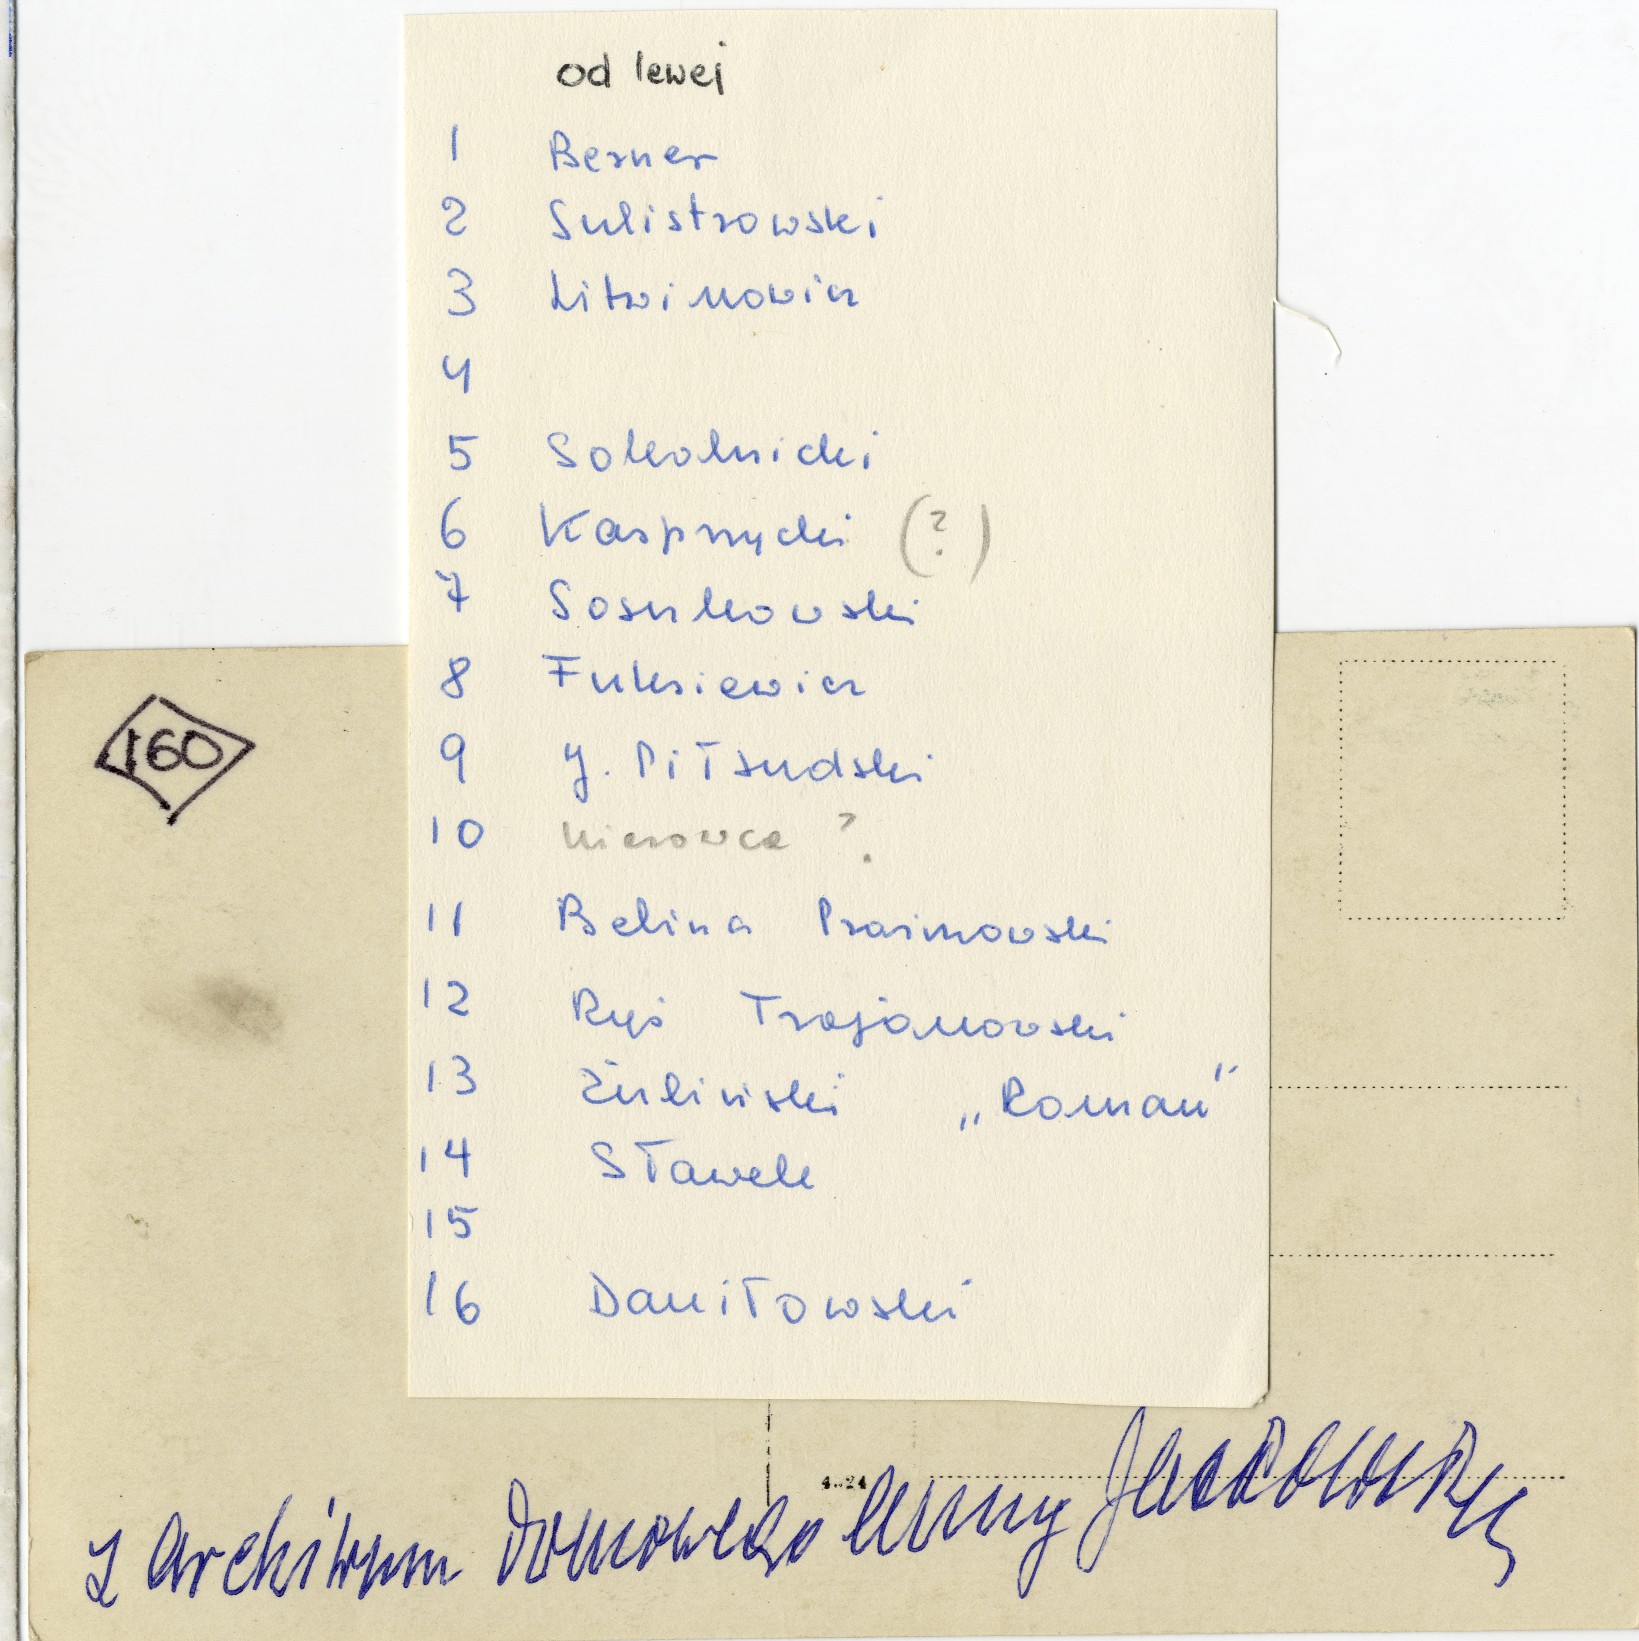 od lewej
1 Berner
2 Sulistrowski
3 Litwinowicz
4
5 Sokolnicki
6 Kasprzycki (?)
7 Sosnkowski
8 Fuksiewicz
9 J. Piłsudski
10 kierowca ?
11 Belina Prażmowski
12 Ryś Trojanowski
13 Żuliński „Roman"
14 Sławek
15
16 Daniłowski
160
4..24
z archiwum domowego